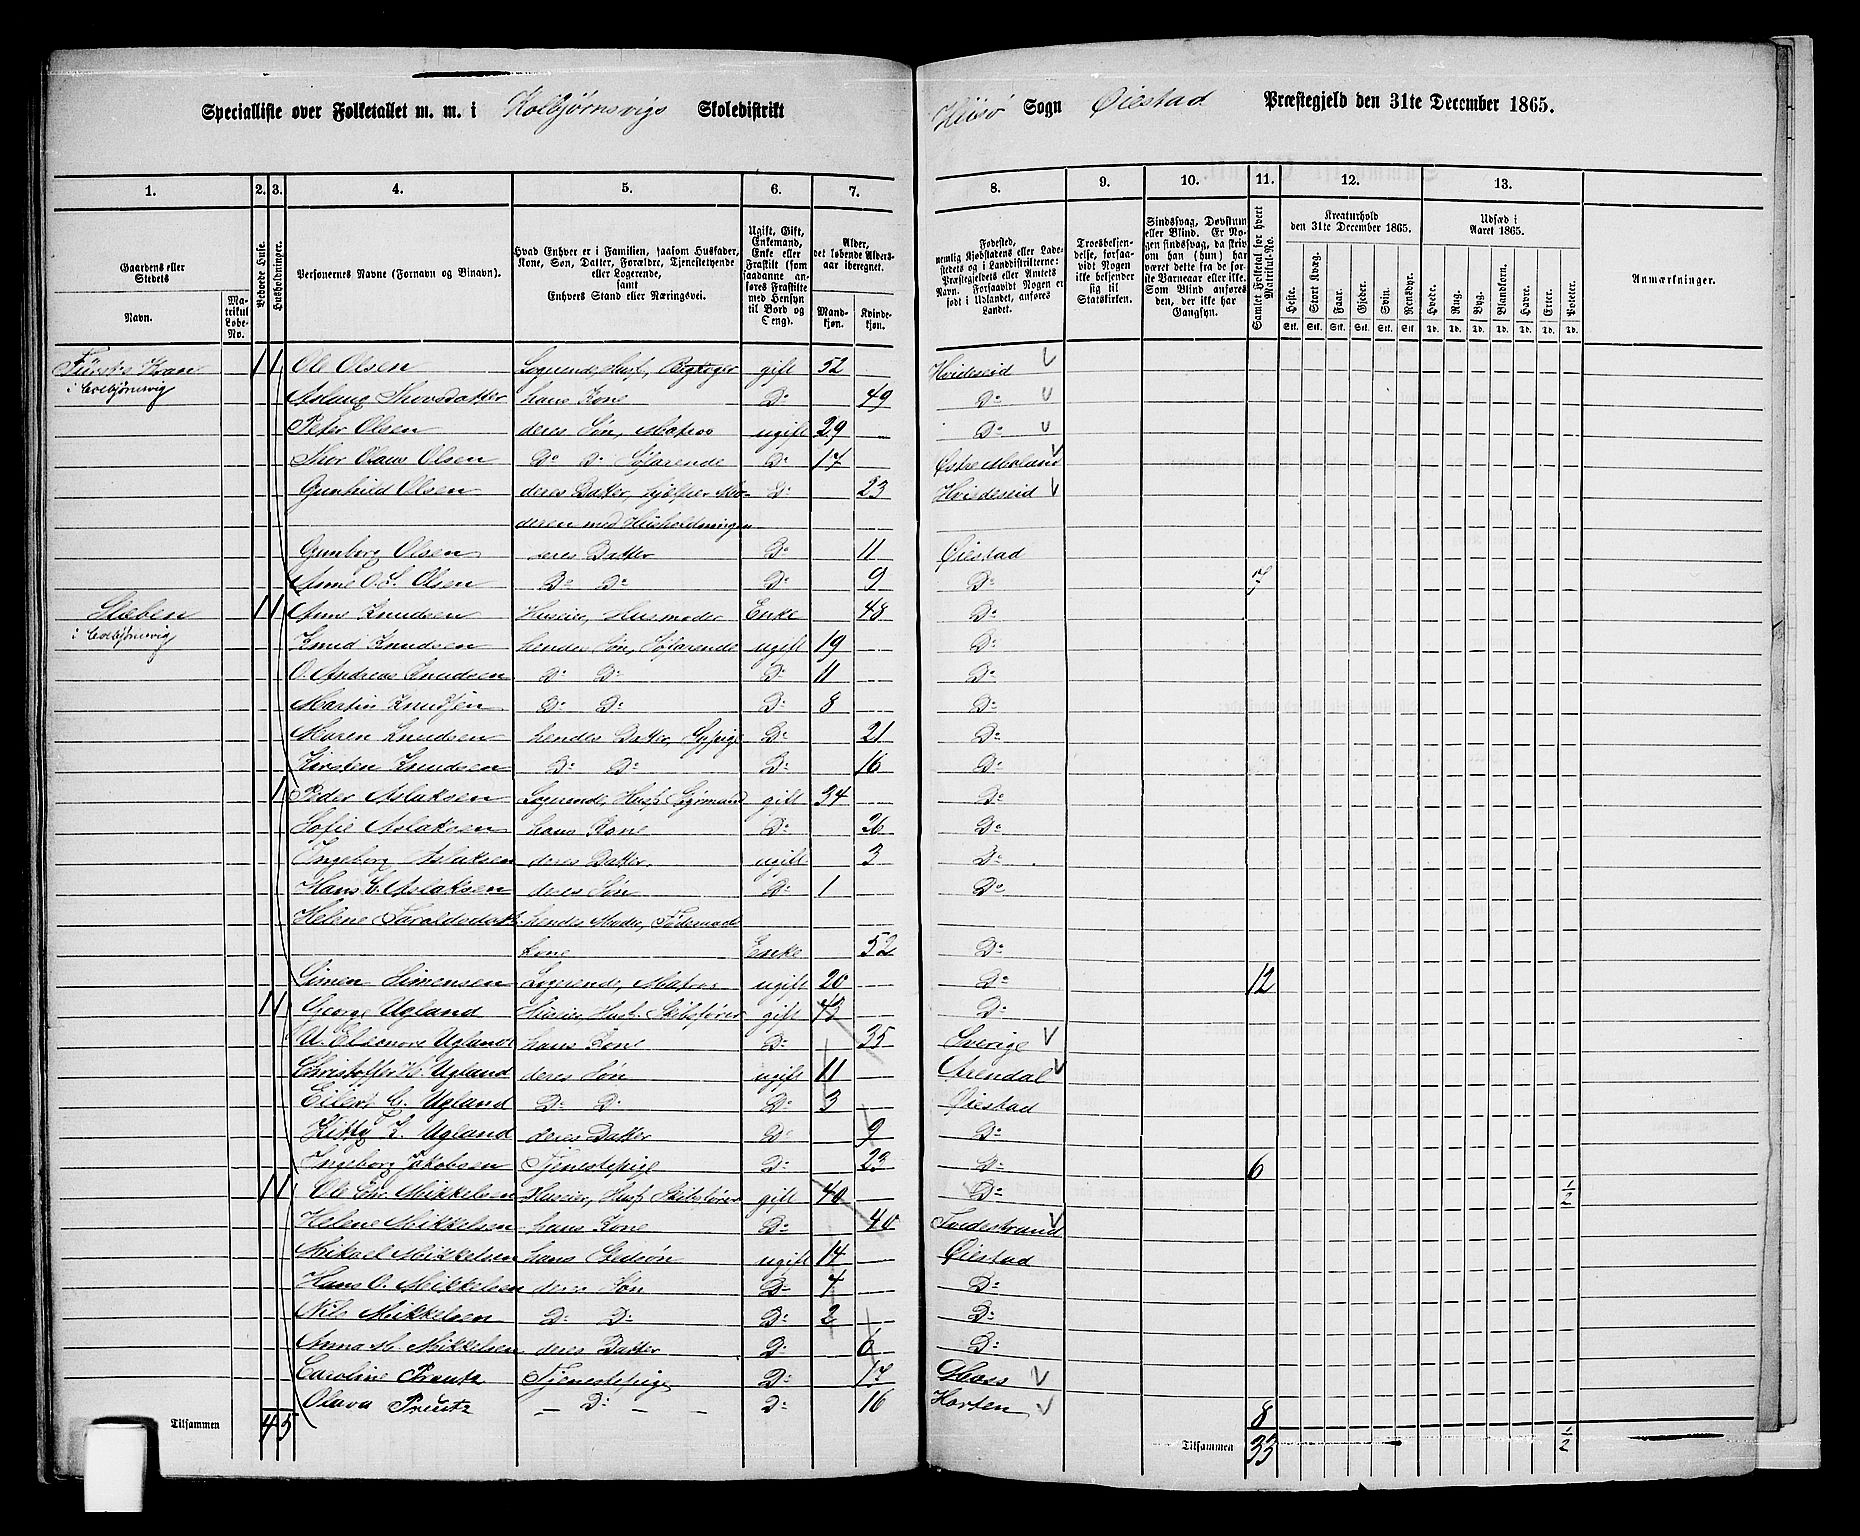 Specialliste over Folketallet m. m. i Kolbjørnsvigs Skoledistrikt Hisø Sogn Øiestad Præstegjeld den 31te December 1865.
1. 2. 3. 4. 5. 6. 7. 8. 9. 10. 11. 12. 13.
Gaardens eller Stedets Navn. Matrikul Løbe-No.
Beboede Huse.
Husholdninger.
Personernes Navne (Fornavn og Binavn).
Hvad Enhver er i Familien, saasom Husfader, Kone, Søn, Datter, Forældre, Tjenestetyende eller Logerende, samt Enhvers Stand eller Næringsvei.
Ugift, Gift, Enkemand, Enke eller Fraskilt (som saadanne anføres Fraskilte med Hensyn til Bord og Seng).
Alder, det løbende Aldersaar iberegnet. Mandkjøn. Kvindekjøn.
Fødested, nemlig Kjøbstadens eller Ladestedets og i Landdistrikterne: Præstegjeldets eller Amtets Navn. Forsaavidt Nogen er født i Udlandet, anføres Landet.
Troesbekjendelse, forsaavidt Nogen ikke bekjender sig til Statskirken.
Sindssvag, Døvstum eller Blind. Er Nogen sindssvag, da skriv om han (hun) har været dette fra de første Barneaar eller ikke. Som Blind anføres den, der ikke har Gangsyn.
Samlet Folketal for hvert Matrikul-No.
Kreaturhold den 31te December 1865. Heste. Stort Kvæg. Faar. Gjeder. Svin. Rensdyr.
Stk. Stk. Stk. Stk. Stk. Stk.
Udsæd i Aaret 1865. Hvede. Rug. Byg. Blandkorn. Havre. Erter. Poteter.
Td. Td. Td. Td. Td. Td. Td.
Anmærkninger.
1 1 Ole Olsen Logerende, Husf, gift 52 Hvideseid
i Colbjørnsvig Aslaug Thovsdatter hans Kone Do 49 Do
Peter Olsen deres Søn, Matros ugift 29 Do
Thor Olaus Olsen Do Do Søfarende Do 17 Østre Moland
Gunhild Olsen deres Datter, hjelper Mo- Do 23 Hvideseid
deren med Husholdningen
Gunborg Olsen deres Datter Do 11 Øiestad
Anne O. S. Olsen Do Do Do 9 Do 7
1 1 Anne Knudsen Huseier, Husmoder Enke 48 Do
i Colbjørnsvig Knud Knudsen hendes Søn, Søfarende ugift 19 Do
O. Andreas Knudsen Do Do Do 11 Do
Martin Knudsen Do Do Do 8 Do
Maren Knudsen hendes Datter, Do 21 Do
Kirsten Knudsen Do Do Do 16 Do
1 Peder Aslaksen Logerende, Husf Styrmand gift 34 Do
Sofie Aslaksen hans Kone Do 26 Do
Ingeborg Aslaksen deres Datter ugift 3 Do
Hans C. Aslaksen deres Søn Do 1 Do
Helene Taraldsdatt. hendes Moder, Føderaads
kone Enke 52 Do
Simen Simensen Logerende, Matros ugift 20 Do 12
1 1 Georg Ugland Huseier, Husf. Skibsfører gift 43 Do
U. Eleonore Ugland hans Kone Do 35 Sverige
Christoffer H. Ugland deres Søn ugift 11 Arendal
Eilert G. Ugland Do Do Do 3 Øiestad
Kitty L. Ugland deres Datter Do 9 Do
Ingeborg Jakobsen Tjenestepige Do 23 Do 6
1 1 Ole Chr. Mikkelsen Huseier, Husf Skibsfører gift 40 Do 1/2
Helene Mikkelsen hans Kone Do 40 Tvedestrand
Mikael Mikkelsen hans Stedsøn ugift 14 Øiestad
Hans O. Mikkelsen deres Søn Do 4 Do
Nils Mikkelsen Do Do Do 2 Do
Anna M. Mikkelsen deres Datter Do 6 Do
Caroline Prentz Tjenestepige Do 17 Moss
Olava Prentz Do Do 16 Horten 8
Tilsammen 4 5 Tilsammen 33 1/2